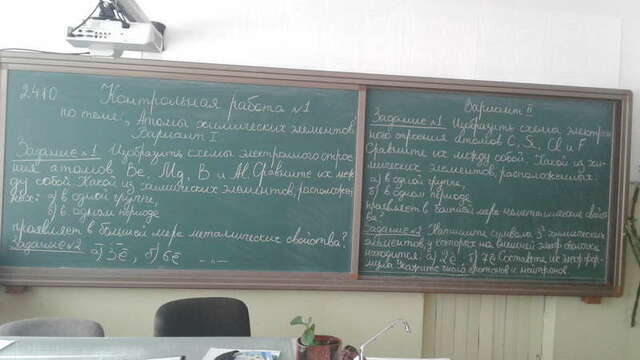 24 10 Контрольная работа №1
по теме: "Атомы химических элементов"
Вариант I.
Задание №1 Изобразить схемы электронного строе-
ния атомов Be, Mg, B и Al. Сравните их меж-
ду собой. Какой из химических элементов, расположен-
ных: а) в одной группе,
б) в одном периоде
проявляет в большей мере металлические свойства?
Задание №2 а) 3ē, б) 6ē
Вариант II
Задание №1 Изобразить схемы электрон-
ного строения атомов C, Si, Cl и F
Сравните их между собой. Какой из хи-
мических элементов, расположенных:
а) в одной группе,
б) в одном периоде
проявляет в большей мере неметаллические свойст-
ва?
Задание №2 Напишите символы 3х химических
элементов, у которых на внешней энер. оболочке
находится: а) 2ē, б) 7ē Составьте их электр. фор-
мулы. Укажите числа протонов и нейтронов